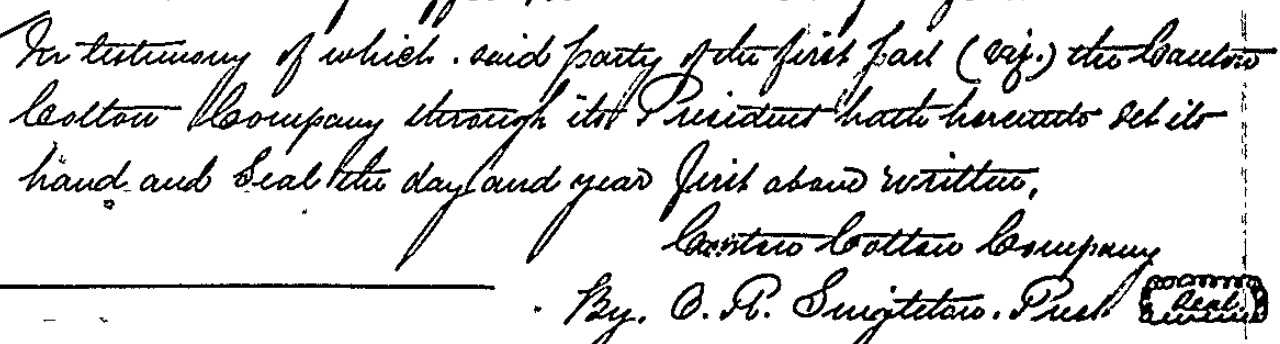 In testimony of which said party of the first part (viz.) the Canton
Cotton Company through its President hath hereunto set its
hand and Seal the day and year first above written,
Canton Cotton Company
By. O. R. Singleton. Prest. Seal